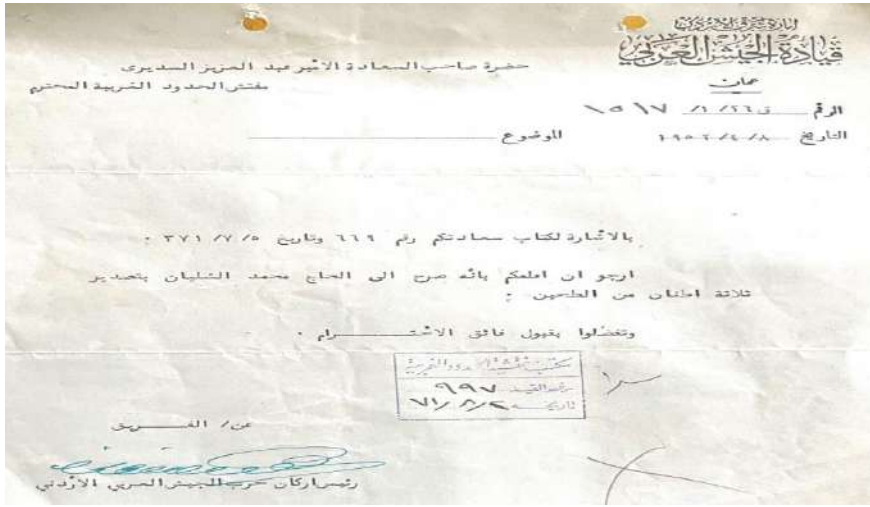 قيادة الجيش العربي
عمان
الرقم ق/٢٦/١/ ١٥١٧
التاريخ ١٩٥٢/٤/٨
الموضوع
حضرة صاحب السعادة الأمير عبد العزيز السديرى
مفتش الحدود الشربية المحترم
بالاشارة لكتاب سعادتكم رقم ٦٦٩ وتاريخ ٣٧١/٧/٥ .
ارجو ان اعلمكم بانه صرح الى الحاج محمد الشليان بتصدير
ثلاثة اطنان من الطحين .
وتفضلوا بقبول فائق الاحتـــرام .
مكتب تفتيش الحدود
رقم القيد ٩٩٧
تاريخه ٧١/٨/٢
عن/ الفـــريق
رئيس اركان حرب الجيش العربي الاردني